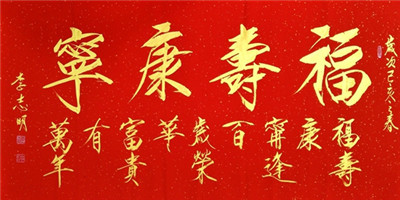 歲次己亥之春
福壽康寧
福壽
康
寧逢
百
歲榮
華
富貴
有
萬年
李志明